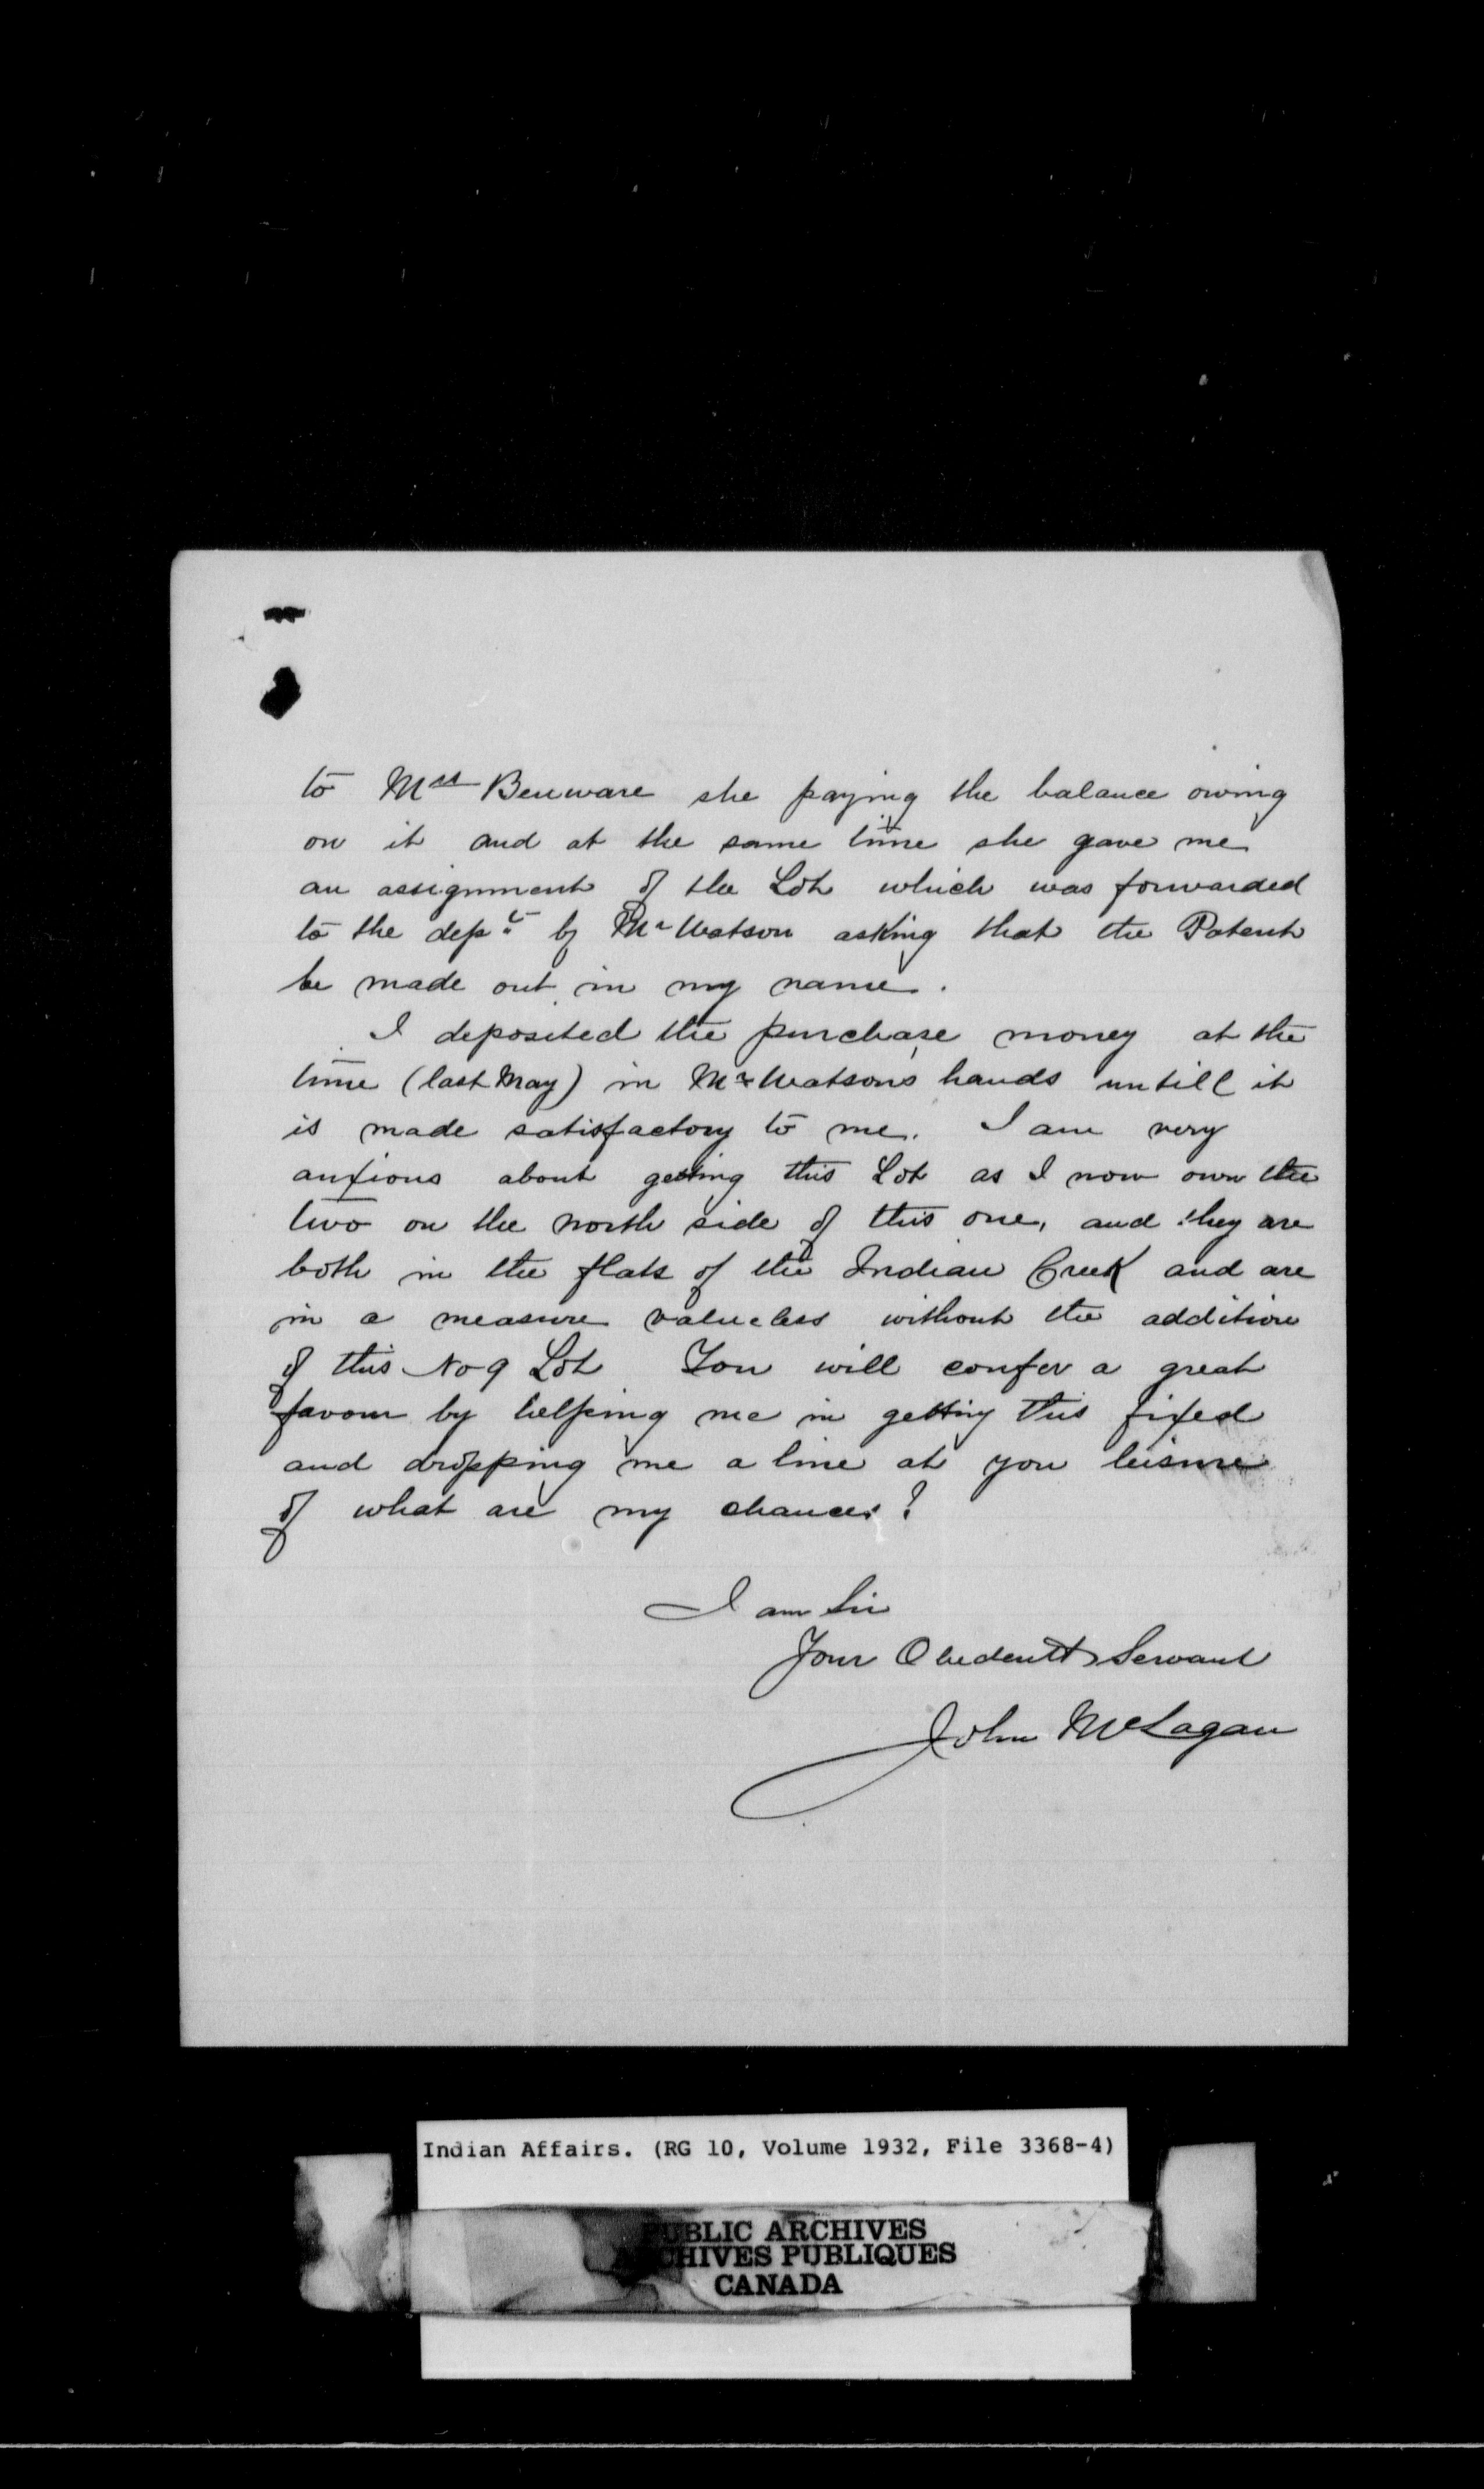 to Mrs Benware she paying the balance owing
on it and at the same time she gave me
an assignment of the Lot which was forwarded
to the dept by Mr Watson asking that the Patent
be made out in my name.
I deposited the purchase money at the
time (last May) in Mr Watsons hands untill it
is made satisfactory to me. I am very
anxious about getting this Lot as I now own the
two on the north side of this one, and they are
both in the flats of the Indian Creek and are
in a measure valueless without the addition
of this No 9 Lot You will confer a great
favour by helping me in getting this fixed
and dropping me a line at you leisure
of what are my chances?
I am Sir
Your Obedentt Servant
John McLagan
Indian Affairs. (RG 10, Volume 1932, File 3368-4)
PUBLIC ARCHIVES
ARCHIVES PUBLIQUES
CANADA